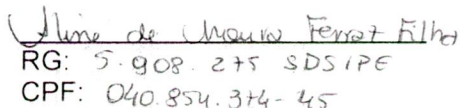 Aline de Moura Ferraz Filha
RG: 5.908.275 SDS/PE
CPF: 040.854.374-45